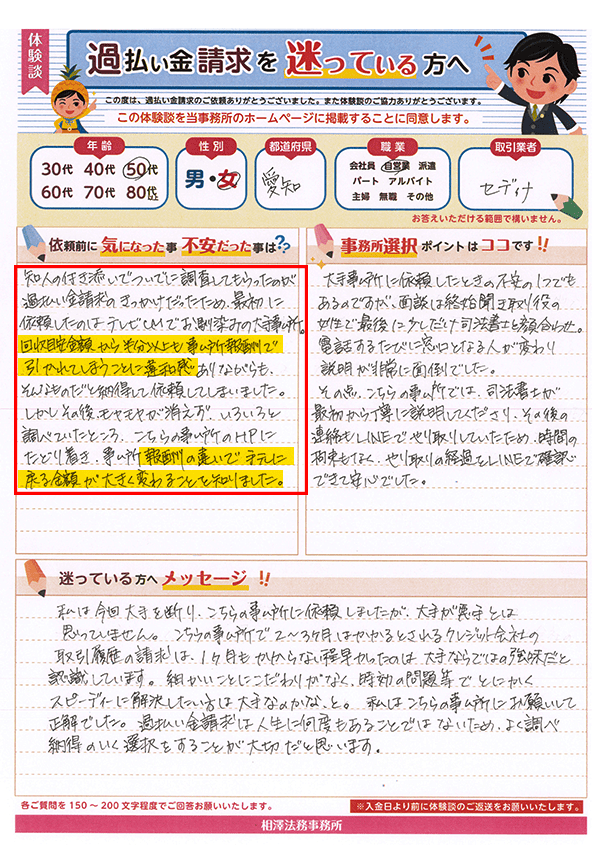 体験談
過払い金請求を迷っている方へ
この度は、過払い金請求のご依頼ありがとうございました。また体験談のご協力ありがとうございます。
この体験談を当事務所のホームページに掲載することに同意します。
年齢
30代 40代 50代
60代 70代 80代以上
性別
男・女
都道府県
愛知
職業
会社員 自営業 派遣
パート アルバイト
主婦 無職 その他
取引業者
セディナ
お答えいただける範囲で構いません。
依頼前に気になった事 不安だった事は??
知人の付き添いでついでに調査してもらったのが
過払い金請求のきっかけだったため、最初に
依頼したのはテレビCMでお馴染みの大手事ム所。
回収目安金額から半分以上も事ム所報酬で
引かれてしまうことに違和感ありながらも、
そんなものだと納得して依頼してしまいました。
しかしその後、モヤモヤが消えず、いろいろと
調べていたところ、こちらの事ム所のHPに
たどり着き、事ム所報酬の違いで手元に
戻る金額が大きく変わることを知りました。
事務所選択 ポイントはココです!!
大手事ム所に依頼したときの不安の1つでも
あるのですが、面談は終始聞き取り役の
女性で最後に少しだけ司法書士と顔合わせ。
電話するたびに窓口となる人が変わり
説明が非常に面倒でした。
その点、こちらの事ム所では、司法書士が
最初から丁寧に説明してくださり、その後の
連絡もLINEでやり取りしていたため、時間の
拘束もなく、やり取りの経過をLINEで確認
できて安心でした。
迷っている方へ メッセージ!!
私は今回大手を断り、こちらの事ム所に依頼しましたが、大手が悪手とは
思っていません。こちらの事ム所で2〜3ヶ月はかかるとされるクレジット会社の
取引履歴の請求は、1ヶ月もかからない程早かったのは大手ならではの強味だと
認識しています。細かいことにこだわりがなく、時効の問題等でとにかく
スピーディーに解決したい方は大手なのかな、と。私はこちらの事ム所にお願いして
正解でした。過払い金請求は人生に何度もあることではないため、よく調べ
納得のいく選択をすることが大切だと思います。
各ご質問を150〜200文字程度でご回答お願いいたします。
※入金日より前に体験談のご返送をお願いいたします。
相澤法務事務所